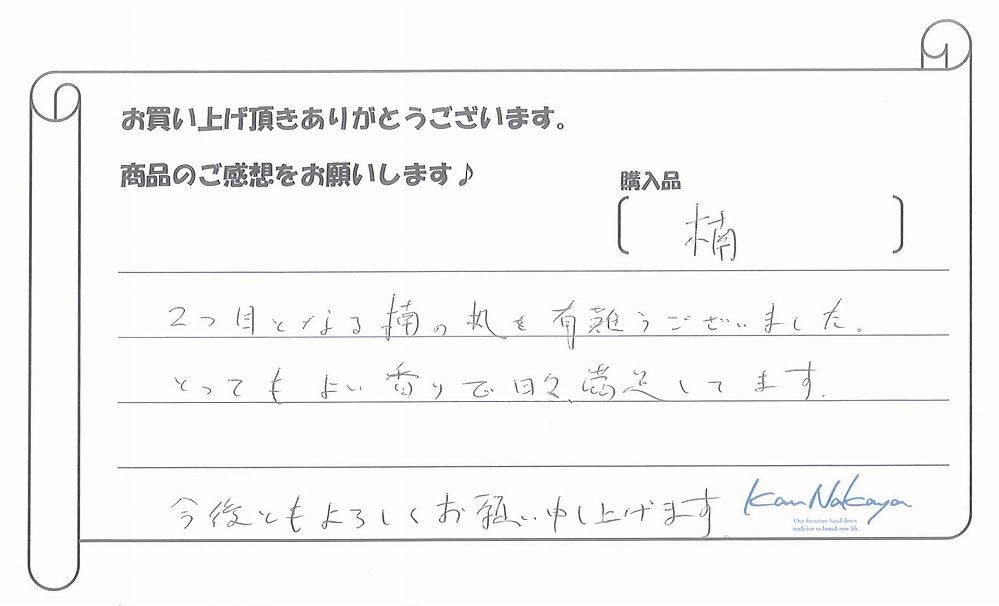 お買い上げ頂きありがとうございます。
商品のご感想をお願いします♪
購入品
楠
2つ目となる楠の机を有難うございました。
とってもよい香りで日々、満足してます。
今後ともよろしくお願い申し上げます
Kan Nakaya
Our furniture hand down
tradition to brand-new life.